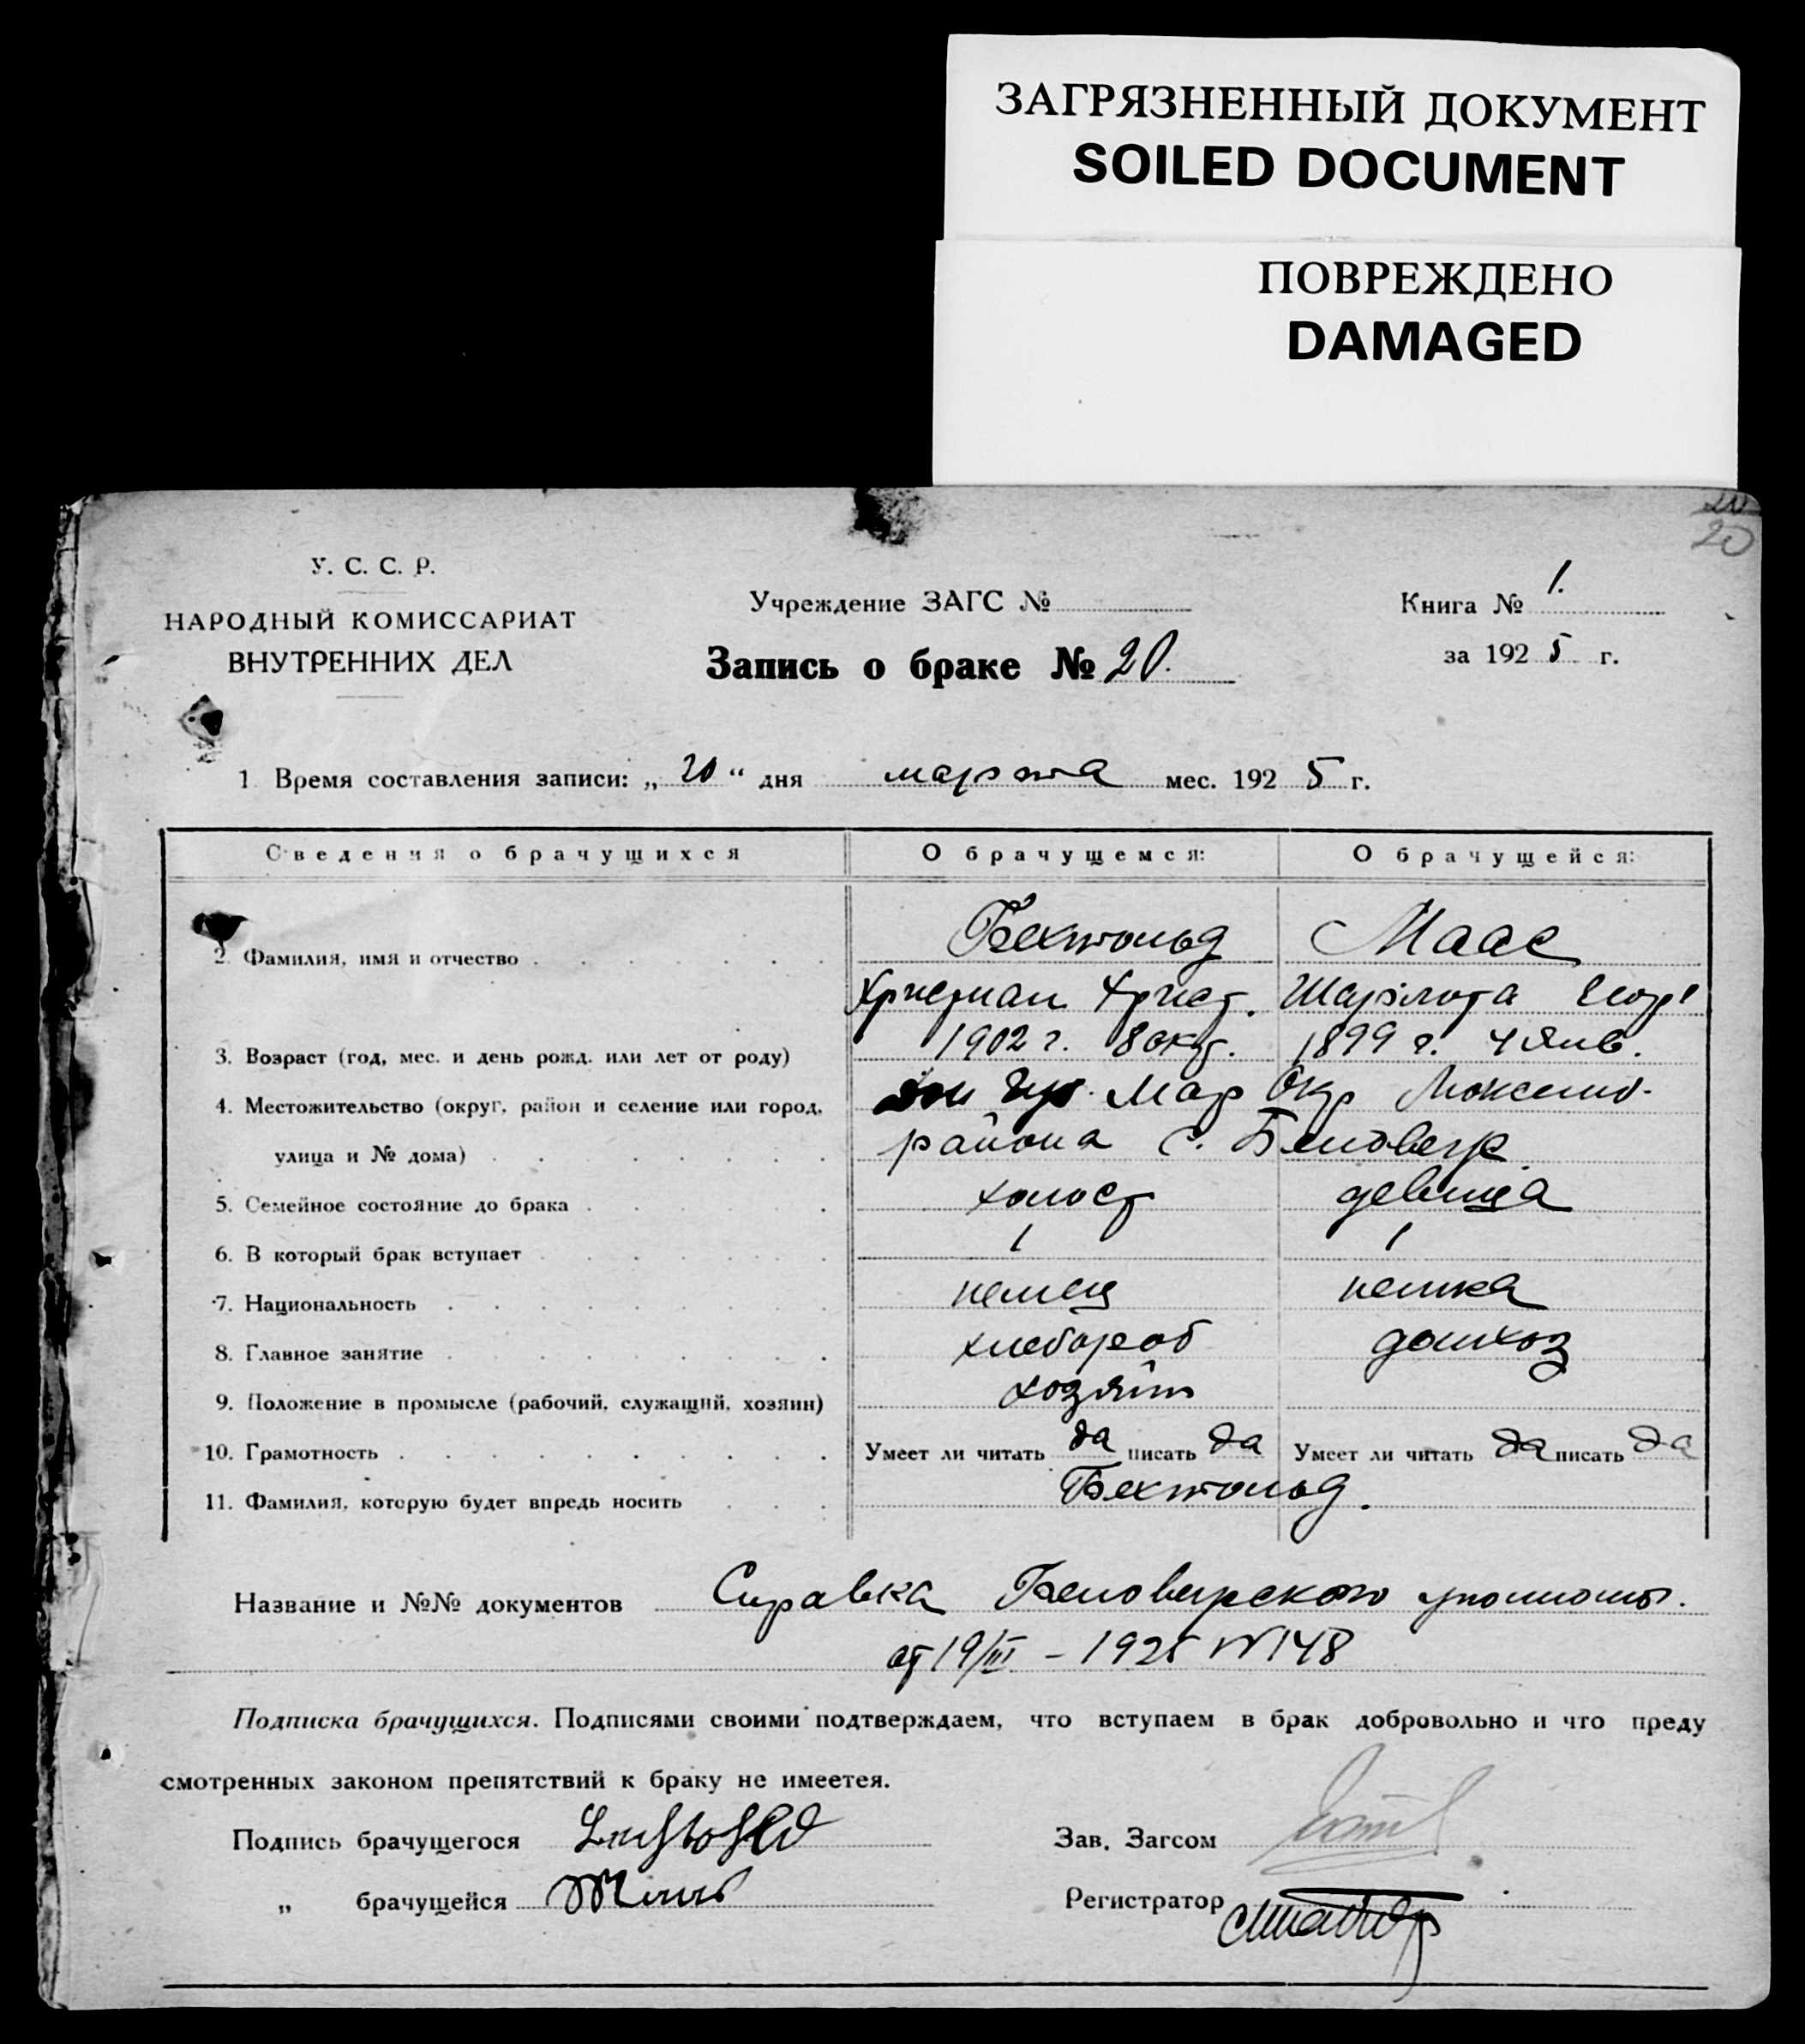 ЗАГРЯЗНЕННЫЙ ДОКУМЕНТ
SOILED DOCUMENT
ПОВРЕЖДЕНО
DAMAGED
20
У. С. С. Р.
НАРОДНЫЙ КОМИССАРИАТ
ВНУТРЕННИХ ДЕЛ
Учреждение ЗАГС №
Запись о браке № 20.
Книга № 1.
за 1925 г.
1. Время составления записи: „20“ дня марта мес. 1925 г.
Сведения о брачущихся О брачущемся: О брачущейся:
Бехтольд Маас
2. Фамилия, имя и отчество
Христиан Христ. Шарлота Егор
3. Возраст (год, мес. и день рожд. или лет от роду) 1902 г. 8 окт. 1899 г. 4 янв.
4. Местожительство (округ, район и селение или город, Мар Окр Люксемб-
улица и № дома) района с. Беловеж
5. Семейное состояние до брака холост девица
6. В который брак вступает 1 1
7. Национальность немец немка
8. Главное занятие хлебороб домхоз
9. Положение в промысле (рабочий, служащий, хозяин) хозяин
10. Грамотность Умеет ли читать да писать да Умеет ли читать да писать да
11. Фамилия, которую будет впредь носить Бехтольд.
Название и №№ документов Справка уполномо.
от 19/III – 1925 № 148
Подписка брачущихся. Подписями своими подтверждаем, что вступаем в брак добровольно и что преду
смотренных законом препятствий к браку не имеетея.
Подпись брачущегося Bechtold
„ брачущейся Maas
Зав. Загсом
Регистратор